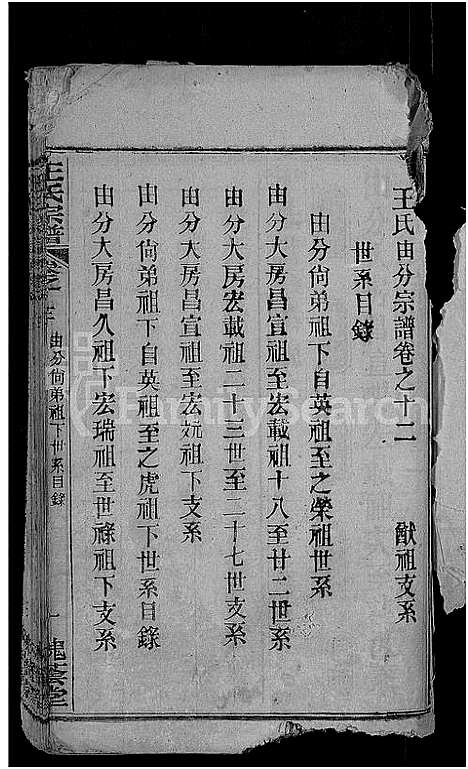 王氏由分宗譜卷之十二 猷祖支系
世系目錄
由分尙弟祖下自英祖至之榮祖世系
由分大房昌宣祖至宏載祖十八至廿二世系
由分大房宏載祖二十三世至二十七世支系
由分大房昌宣祖至宏㛃祖下支系
由分尙弟祖下自英祖至之虎祖下世系目錄
由分大房昌久祖下宏瑞祖至世祿祖下支系
王氏宗譜 卷之十二 由分尙弟祖下世系目錄 一 槐蔭堂
FamilySearch